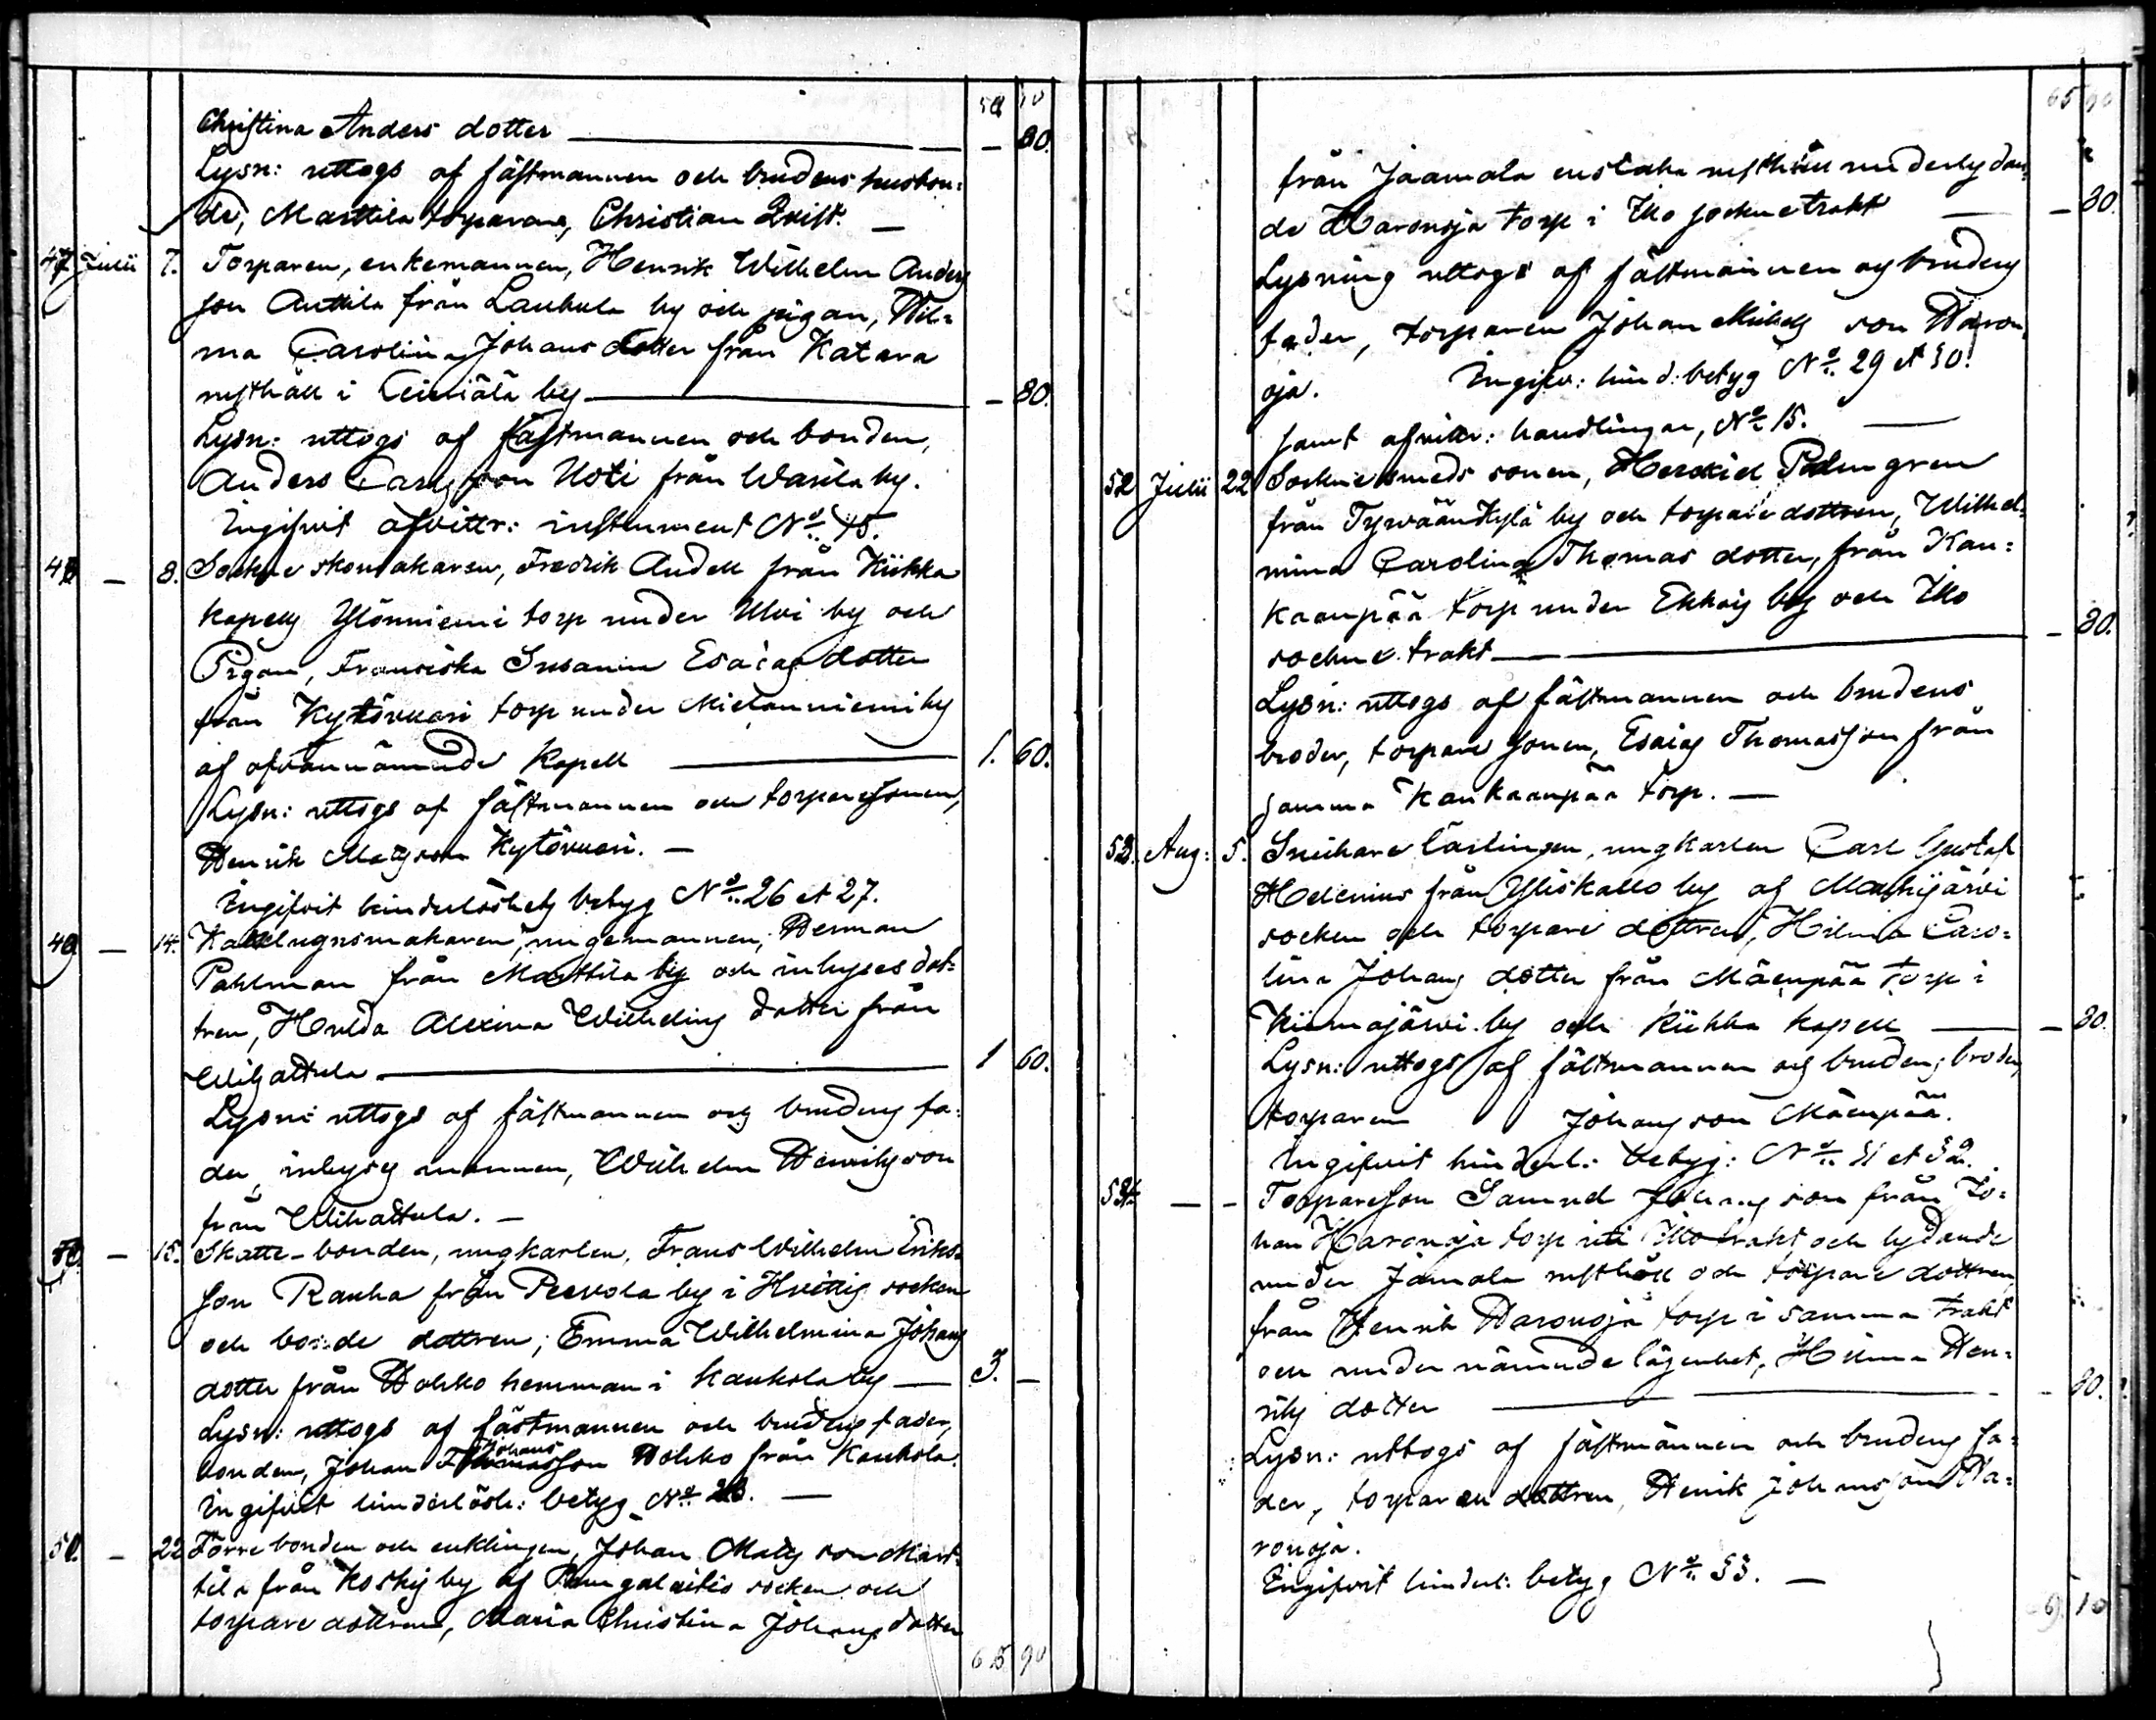 58 50
Christina Anders dotter — — 80.
Lysn: uttogs af fästmannen och brudens husbon:
de, Marttila torparen, Christian Qvist. —
47 Julii 7. Torparen, enkemannen, Henrik Wilhelm Anders
son Anttila från Laukula by och pigan, Wil=
ma Carolina Johans dotter från Katara
rusthåll i by — — 80.
Lysn: uttogs af fästmannen och bonden,
Anders Carlsson Uoti från Warila by.
Ingifvit afvittr: instrument No 45.
48 — 8. Sockne skomakaren, Fredrik Andell från Kiikka
kapells Ylönniemi torp under Ulvi by och
Pigan, Fransiska Susanna Esaias dotter
från Kytövuori torp under Kiettanniemi by
af ofvannämnde Kapell — 1. 60.
Lysn: uttogs af fästmannen och torparesonen,
Henrik Matsson Kytövuori. —
Ingifvit hinderlöshets betyg No 26 et 27.
49 — 14. Kakelugnsmakaren, ungemannen, Herman
Pahlman från Marttila by och inhyses dot=
tren, Hulda Alexina Wilhelms dotter från
Wihattula — 1 60.
Lysn: uttogs af fästmannen och brudens fa=
der, inhyses mannen, Wilhelm Henriksson
från Wihattula. —
50. — 15. Skatte-bonden, ungkarlen, Frans Wilhelm Eriks
son Rauha från Peevola by i Hvittis socken
och bonde dottren, Emma Wilhelmina Johans
dotter från Wohko hemman i Kaukola by — 3. —
Lysn: uttogs af fästmannen och brudens fader,
Johans
bonden, Johan Thomasson Wohko från Kaukola.
Ingifvit hinderlösh: betyg No 28. —
51. — 22 Förre bonden och enklingen, Johan Mats son Mart=
tila från Koskis by af Pungalaitio socken och
torpare dottren, Maria Christina Johans dotter
65 90
65 90
från Jaamala enstaka rusthåll underlydan=
de Haronoja torp i Illo sockne trakt — — 80.
Lysning uttogs af fästmannen och brudens
fader, torparen Johan Michels son Haron
oja. Ingifv: hind: betyg No 29 et 30.
samt afvittr: handlingar, No 15. —
52 Julii 22 Sockne smeds sonen, Heskiel Palmgren
från Tyrväänkylä by och torpare dottren, Wilhel=
mina Carolina Thomas dotter, från Kan=
kaanpää torp under Ekkois by och Illo
sockne trakt — — 80.
Lysn: uttogs af fästmannen och brudens
broder, torpare sonen, Esaias Thomasson från
samma Kankaanpää torp. —
53. Aug: 5. Snickare lärlingen, ungkarlen Carl Gustaf
Helenius från Yliskallo by af Mouhijärvi
socken och torpare dottren, Hilma Caro=
lina Johans dotter från Mäenpää torp i
Kiimajärvi by och Kiikka kapell — — 80.
Lysn: uttogs af fästmannen och brudens broder,
torparen Johans son Mäenpää.
Ingifvit hinderl: betyg: No 31 et 32.
54 — — Torpareson Samuel Johans son från Jo=
han Haronoja torp uti Illo trakt och lydande
under Jamala rusthåll och torpare dottren
från Henrik Haronoja torp i samma trakt
och under nämnde lägenhet, Hilma Hen=
riks dotter — — 80.
Lysn: uttogs af fästmannen och brudens fa=
der, torparen dottren, Henrik Johansson Ha=
ronoja.
Ingifvit hinderl: betyg No 33. —
69. 10